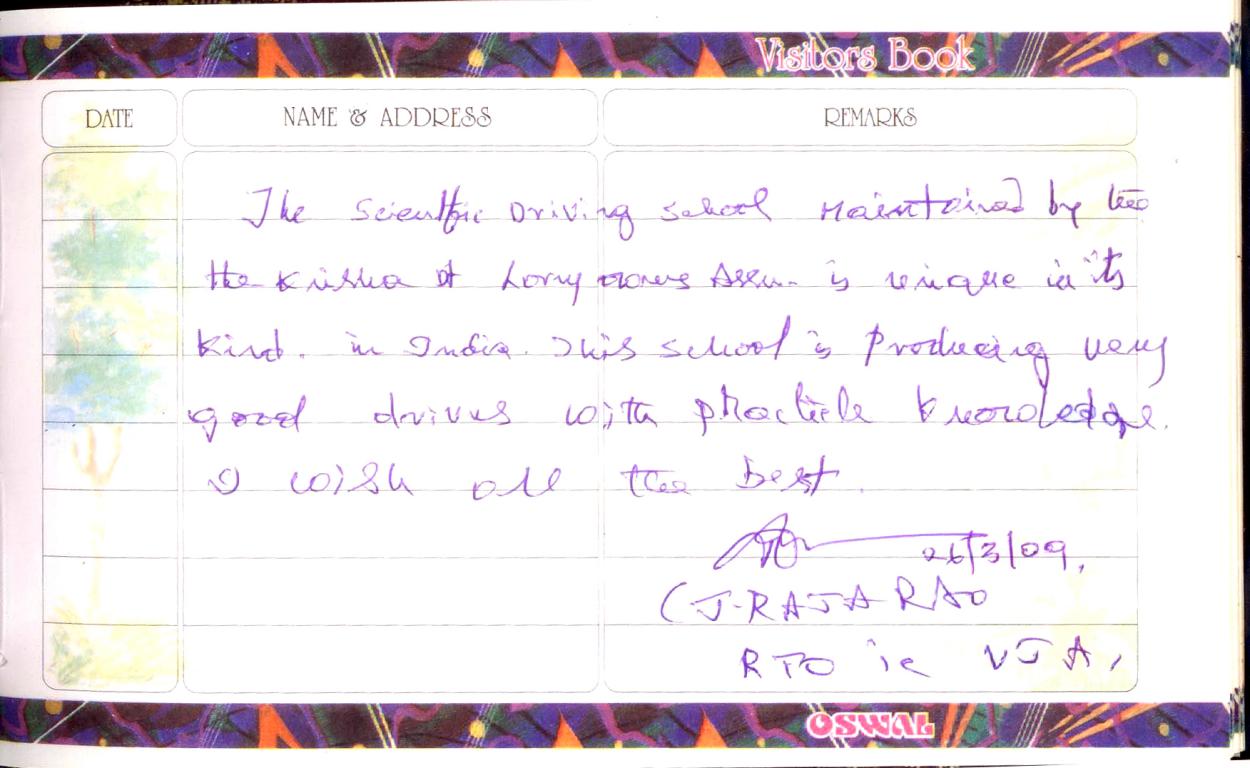 Visitors Book
DATE NAME & ADDRESS REMARKS
The Scientific Driving School Maintained by the
the Krishna Dt Lorry owners Assn. is unique in its
kind. in India. This school is producing very
good drivers with practicle knowledge.
I wish all the best.
26/3/09,
(J-RAJA RAO
RTO ic VJA,
OSWAL